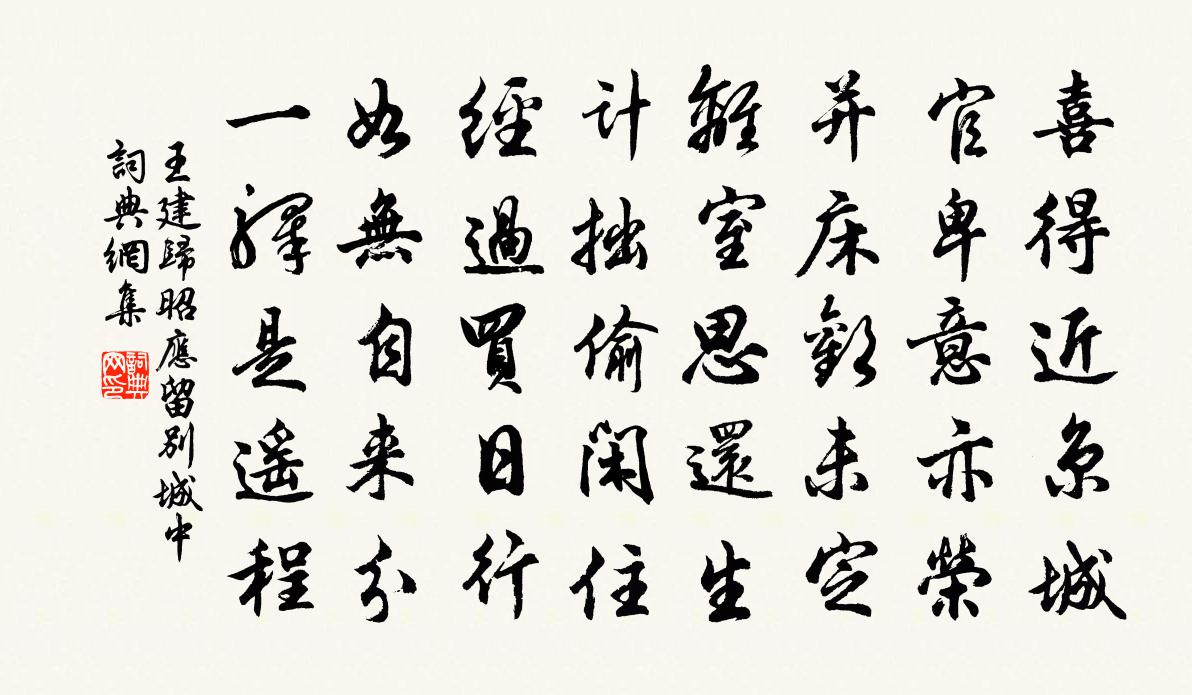 喜得近京城
官卑意亦榮
并床歡未定
離室思還生
计拙偷閑住
經過買日行
如無自来分
一驛是遥程
王建歸昭應留別城中
詞典網集
詞典网印